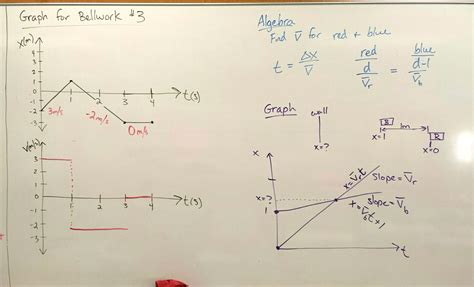 Graph for Bellwork #3
x(m)
4
3
2
1
0
-1
-2
-3
1
2
3
4
t(s)
3m/s
-2m/s
0m/s
v(m/s)
3
2
1
0
-1
-2
-3
1
2
3
4
t(s)
Algebra
Find v̄ for red + blue
t = Δx/v̄
red
d/v̄r
=
blue
d-1/v̄b
Graph
wall
x=?
B
x=1
1m
R
x=0
x
x=?
1
x=v̄rt
slope=v̄r
slope=v̄b
+=v̄bt+1
t